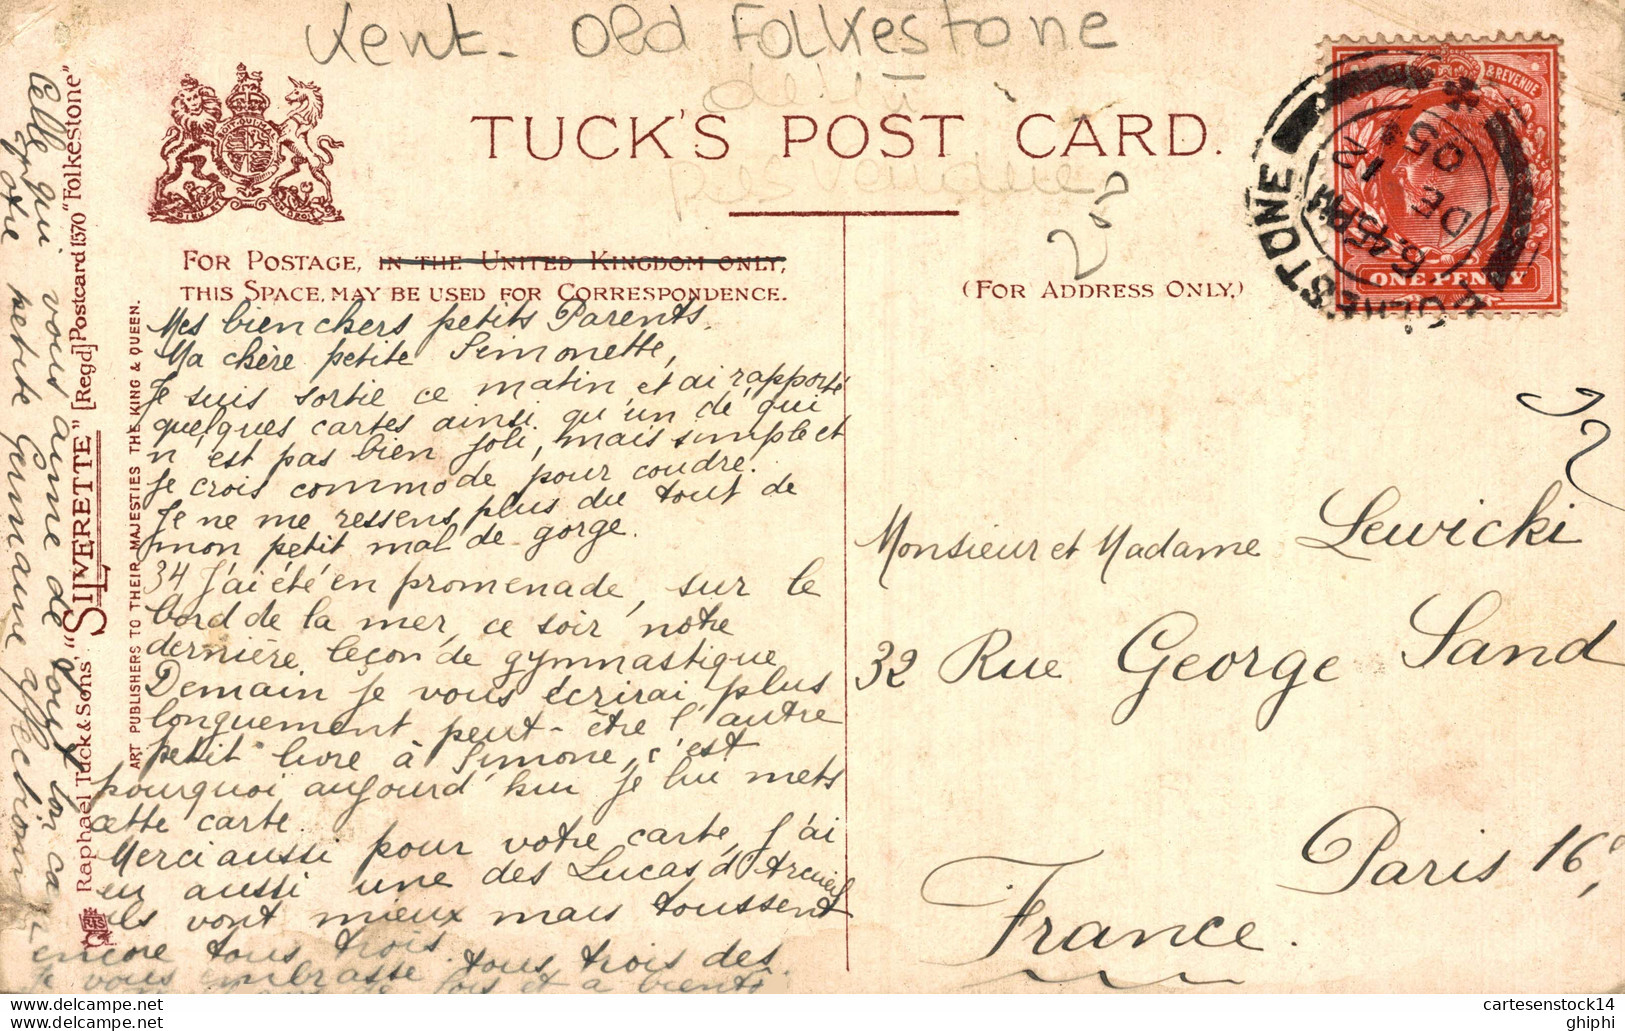 Kent - Old Folkestone
TUCK'S POST CARD.
FOR POSTAGE, IN THE UNITED KINGDOM ONLY,
THIS SPACE, MAY BE USED FOR CORRESPONDENCE.
(FOR ADDRESS ONLY,)
& REVENUE
ONE PENNY
FOLKESTONE
6.45PM
DE 1
05
Mes bien chers petits Parents,
Ma chère petite Simonette,
Je suis sortie ce matin, et ai rapporté
quelques cartes ainsi qu'un dé qui
n'est pas bien joli, mais simple et
je crois commode pour coudre.
Je ne me ressens plus du tout de
mon petit mal de gorge.
34 J'ai été en promenade, sur le
bord de la mer, ce soir notre
dernière leçon de gymnastique
Demain je vous écrirai plus
longuement peut-être l'autre
petit livre à Simone, c'est
pourquoi aujourd'hui je lui mets
cette carte.
Merci aussi pour votre carte, j'ai
eu aussi une des Lucas d'Arcueil
ils vont mieux mais toussent
encore tous trois.
Je vous embrasse tous trois des
fois et à bientôt
Celle qui vous aime de tout son cœur
Votre petite Germaine affectionnée
Monsieur et Madame Lewicki
32 Rue George Sand
Paris 16e,
France.
Raphael Tuck & Sons' "SILVERETTE" [Regd] Postcard 1570 "Folkestone"
ART PUBLISHERS TO THEIR MAJESTIES THE KING & QUEEN.
cartesenstock14
ghiphi